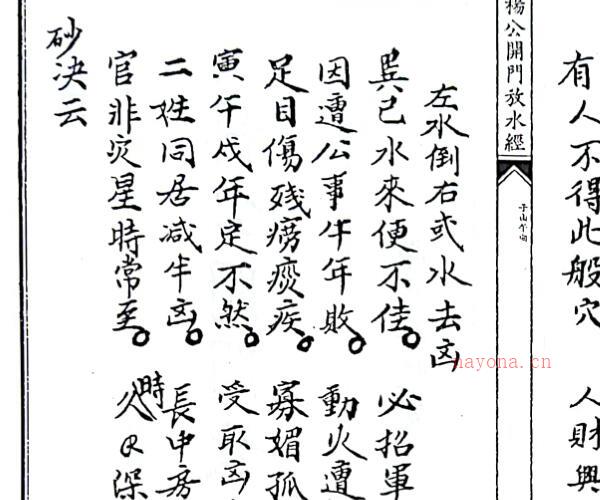 有人不得此般穴 人財興
楊公開門放水經
子山午向
左水倒右或水去凶
巽巳水來便不佳 必招軍
因遭公事牛年敗 動火遭
足目傷殘癆痰疾 寡媚孤
寅午戌年定不然 受取凶
二姓同居减半凶 長中房
官非灾星時常至 時
砂决云
nayona.cn